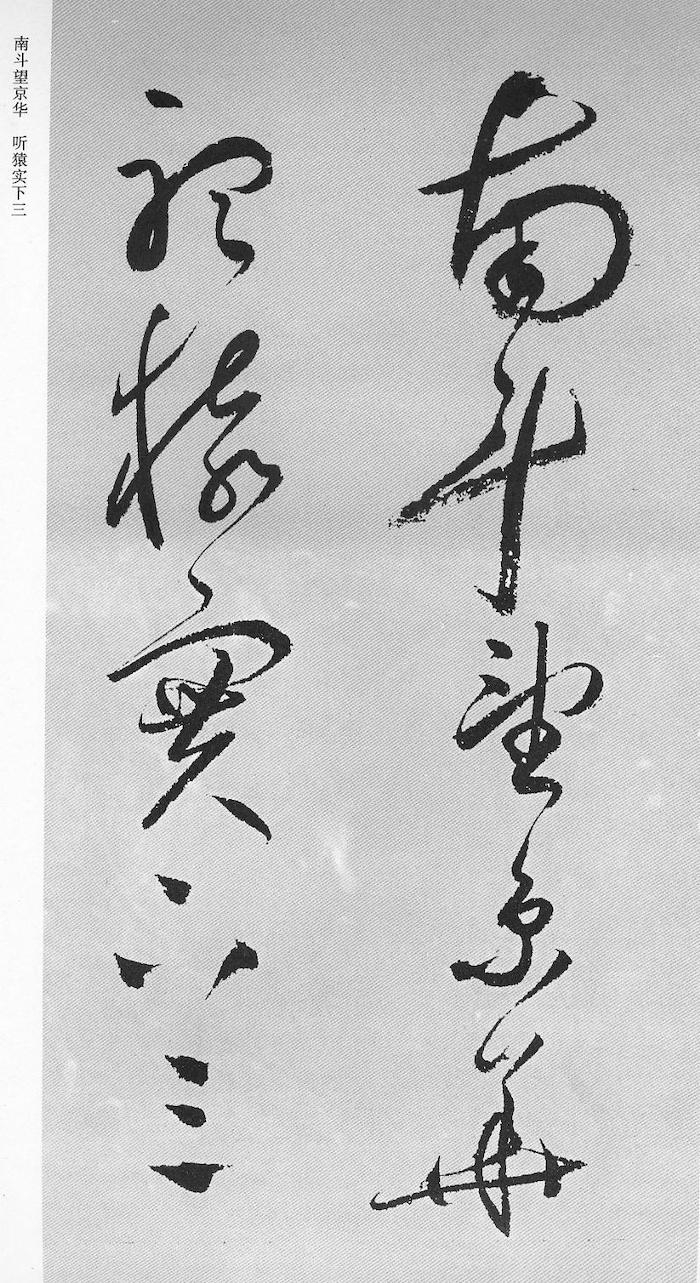 南斗望京华 听猿实下三
南斗望京華
聽猿實下三